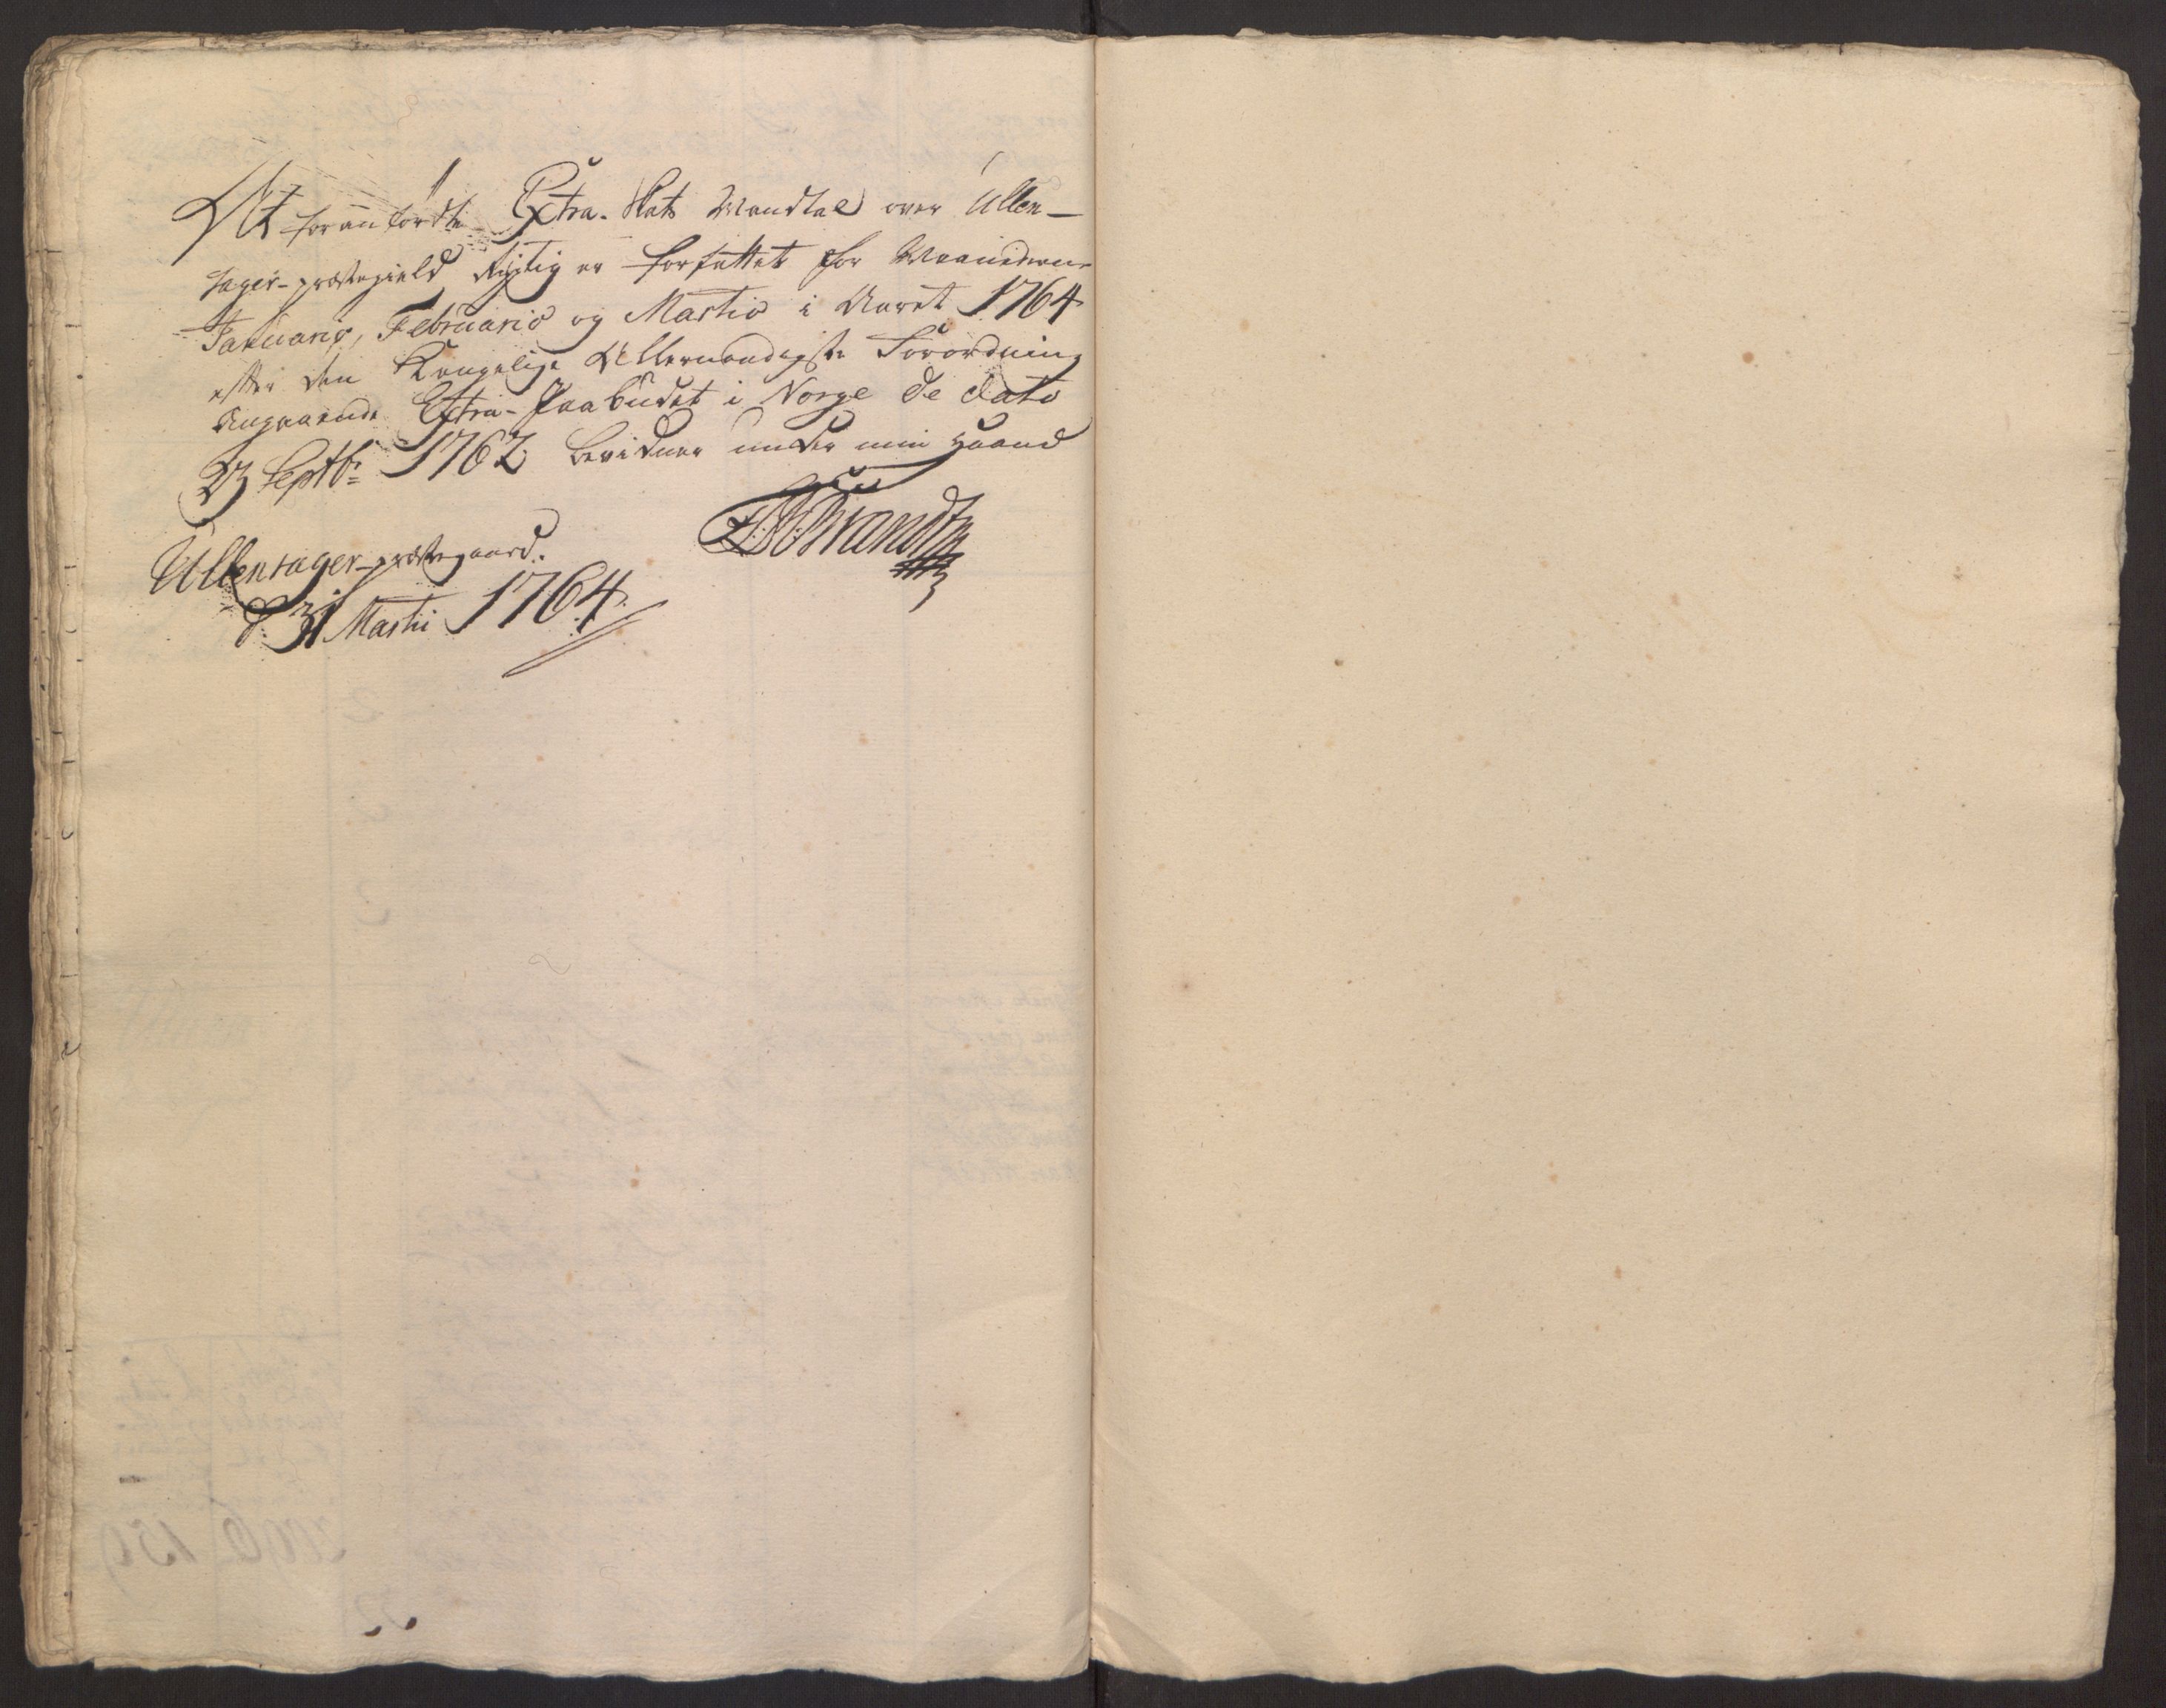 At forannførdte Extra-Skats Mandtal over Ullen-
sager-præstegield Rigtig er forfattet for Maanederne
Januario, Februario og Martio i Aaret 1764
efter den Kongelige Allernaadigste Forordning
Angaaende Extra-Paabudet i Norge de dato
23 Septbr. 1762 bevidner under min Haand
Ullensager-præstegaard.
d. 31 Martii 1764.
Brandt